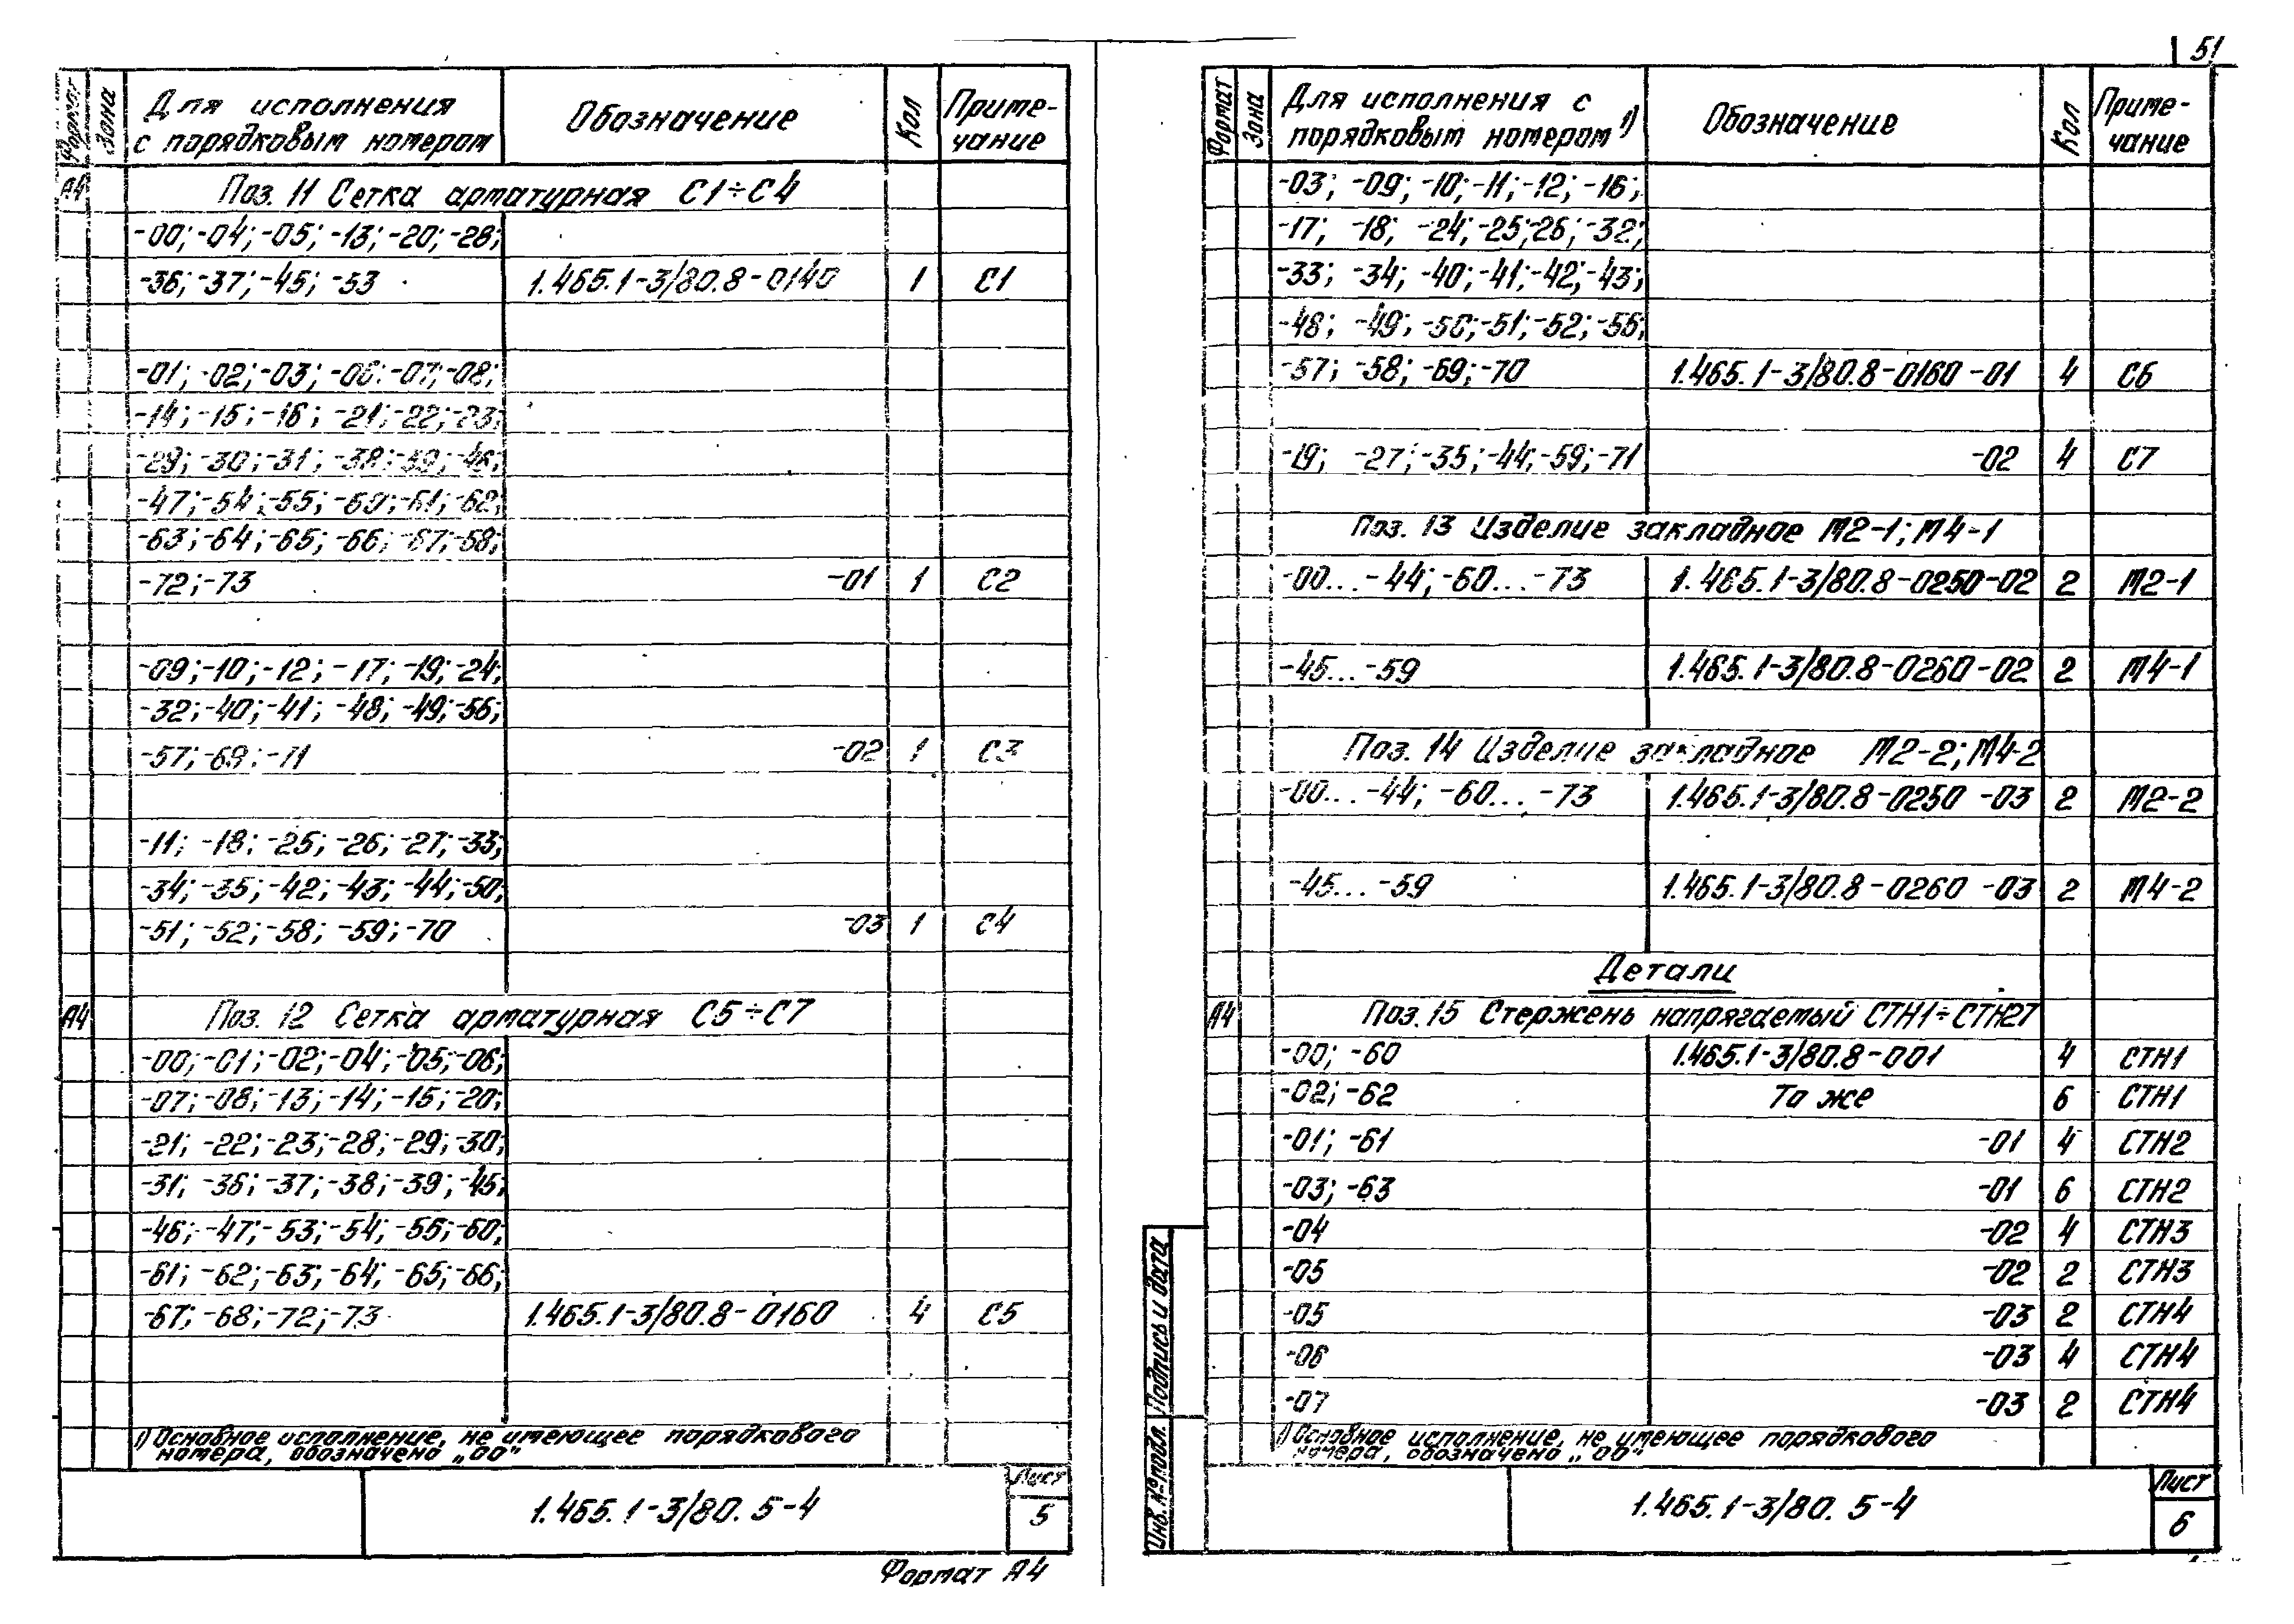 51
Формат
Зона
Для исполнения
с порядковым номером
Обозначение
Кол
Приме-
чание
А4 Поз. 11 Сетка арматурная С1÷С4
-00; -04; -05; -13; -20; -28;
-36; -37; -45; -53 1.465.1-3/80.8-0140 1 С1
-01; -02; -03; -06; -07; -08;
-14; -15; -16; -21; -22; -23;
-29; -30; -31; -38; -39; -46;
-47; -54; -55; -60; -61; -62;
-63; -64; -65; -66; -67; -68;
-72; -73 -01 1 С2
-09; -10; -12; -17; -19; -24;
-32; -40; -41; -48; -49; -56;
-57; -69; -71 -02 1 С3
-11; -18; -25; -26; -27; -33;
-34; -35; -42; -43; -44; -50;
-51; -52; -58; -59; -70 -03 1 С4
А4 Поз. 12 Сетка арматурная С5÷С7
-00; -01; -02; -04; -05; -06;
-07; -08; -13; -14; -15; -20;
-21; -22; -23; -28; -29; -30;
-31; -36; -37; -38; -39; -45;
-46; -47; -53; -54; -55; -60;
-61; -62; -63; -64; -65; -66;
-67; -68; -72; -73 1.465.1-3/80.8-0160 4 С5
1) Основное исполнение, не имеющее порядкового
номера, обозначено „00"
1.465.1-3/80. 5-4
Лист
5
Формат А4
Формат
Зона
Для исполнения с
порядковым номером 1)
Обозначение
Кол
Приме-
чание
-03; -09; -10; -11; -12; -16;
-17; -18; -24; -25; -26; -32;
-33; -34; -40; -41; -42; -43;
-48; -49; -50; -51; -52; -56;
-57; -58; -69; -70 1.465.1-3/80.8-0160 -01 4 С6
-19; -27; -35; -44; -59; -71 -02 4 С7
Поз. 13 Изделие закладное М2-1; М4-1
-00... -44; -60... -73 1.465.1-3/80.8-0250-02 2 М2-1
-45... -59 1.465.1-3/80.8-0260-02 2 М4-1
Поз. 14 Изделие закладное М2-2; М4-2
-00... -44; -60... -73 1.465.1-3/80.8-0250 -03 2 М2-2
-45... -59 1.465.1-3/80.8-0260 -03 2 М4-2
Детали
А4 Поз. 15 Стержень напрягаемый СТН1÷СТН27
-00; -60 1.465.1-3/80.8-001 4 СТН1
-02; -62 То же 6 СТН1
-01; -61 -01 4 СТН2
-03; -63 -01 6 СТН2
-04 -02 4 СТН3
-05 -02 2 СТН3
-05 -03 2 СТН4
-06 -03 4 СТН4
-07 -03 2 СТН4
1) Основное исполнение, не имеющее порядкового
номера, обозначено „00"
Инв. № подл.
Подпись и дата
1.465.1-3/80. 5-4
Лист
6